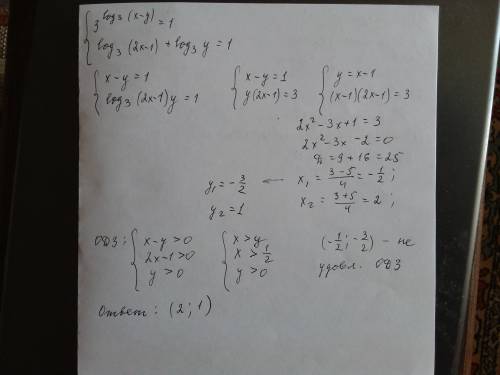 { 3^{log_3 (x-y)} = 1
log_3 (2x-1) + log_3 y = 1
{ x-y=1
log_3 (2x-1)y = 1
{ x-y=1
y(2x-1)=3
{ y=x-1
(x-1)(2x-1)=3
2x²-3x+1=3
2x²-3x-2=0
=9+16=25
x₁ = (3-5)/4 = -1/2;
y₁ = -3/2 ←
x₂ = (3+5)/4 = 2;
y₂ = 1
ОДЗ: { x-y>0
2x-1>0
y>0
{ x>y
x>1/2
y>0
(-1/2; -3/2) - не
удовл. ОДЗ
Ответ: (2; 1)